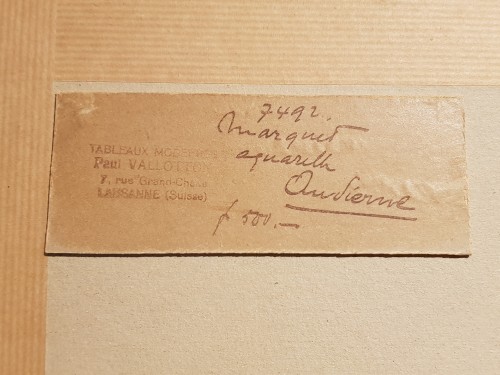 TABLEAUX MODERNES
Paul VALLOTTON
7, rue Grand-Chêne
LAUSANNE (Suisse)
7492.
Marquet
aquarelle
Audierne
f 500.-